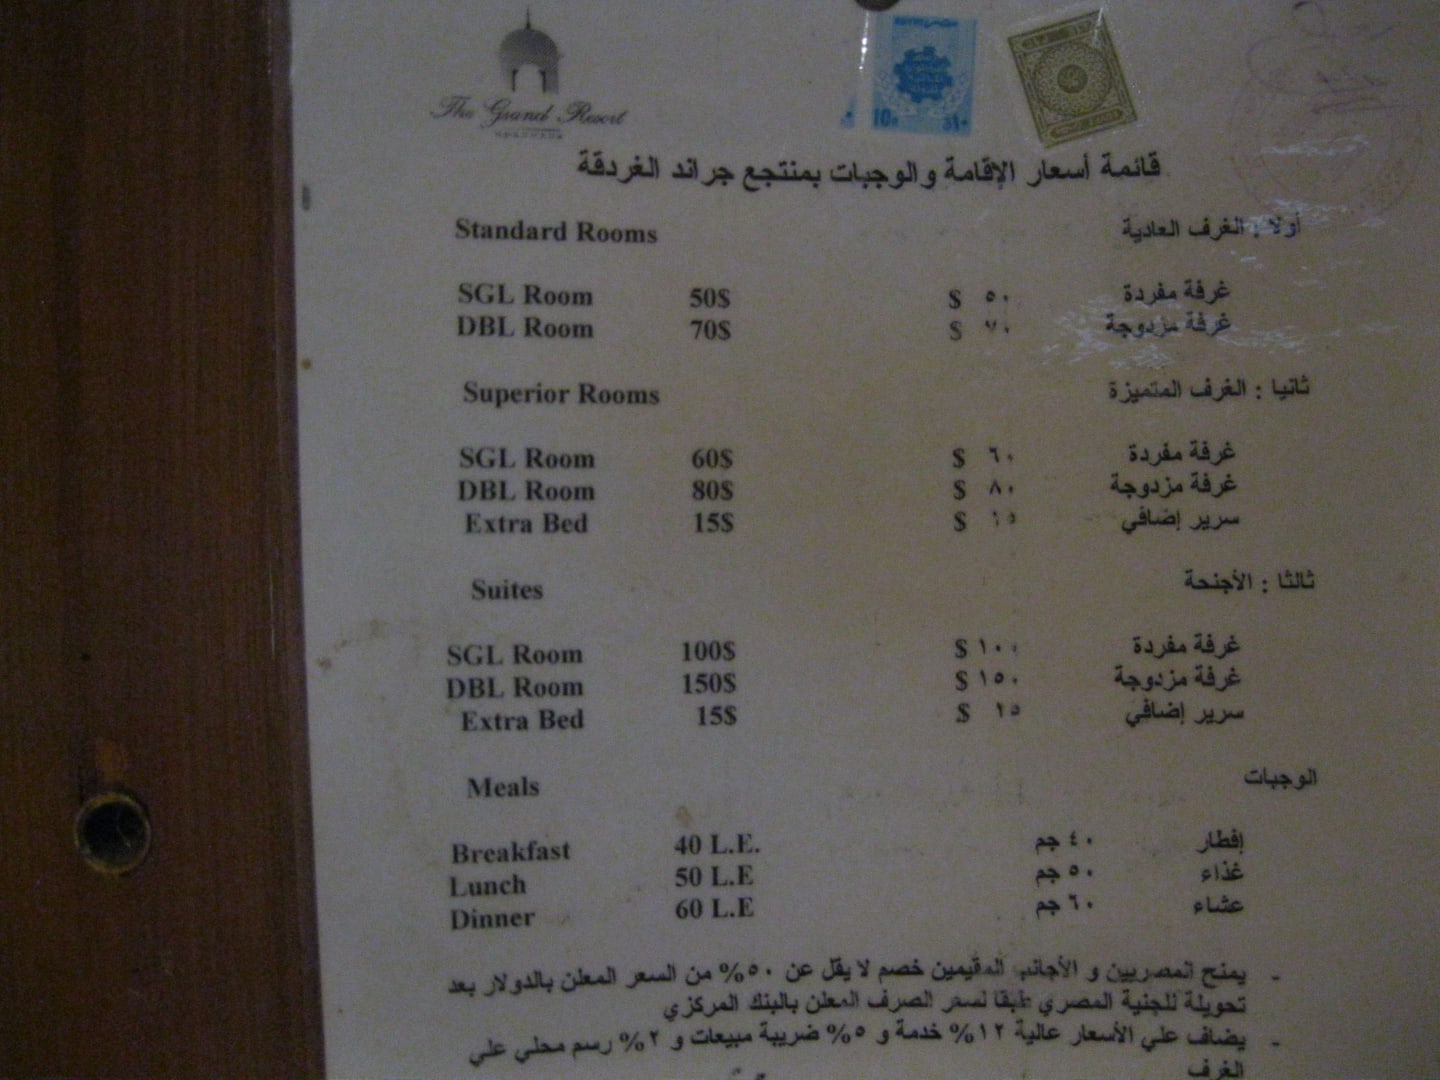 The Grand Resort
HURGHADA
EGYPT مصر
10 ١٠
قائمة أسعار الإقامة والوجبات بمنتجع جراند الغردقة
Standard Rooms أولا : الغرف العادية
SGL Room 50$ $ ٥٠ غرفة مفردة
DBL Room 70$ $ ٧٠ غرفة مزدوجة
Superior Rooms ثانيا : الغرف المتميزة
SGL Room 60$ $ ٦٠ غرفة مفردة
DBL Room 80$ $ ٨٠ غرفة مزدوجة
Extra Bed 15$ $ ١٥ سرير إضافي
Suites ثالثا : الأجنحة
SGL Room 100$ $ ١٠٠ غرفة مفردة
DBL Room 150$ $ ١٥٠ غرفة مزدوجة
Extra Bed 15$ $ ١٥ سرير إضافي
Meals الوجبات
Breakfast 40 L.E. ٤٠ جم إفطار
Lunch 50 L.E ٥٠ جم غذاء
Dinner 60 L.E ٦٠ جم عشاء
- يمنح المصريين و الأجانب المقيمين خصم لا يقل عن ٥٠% من السعر المعلن بالدولار بعد
تحويلة للجنية المصري طبقا لسعر الصرف المعلن بالبنك المركزي
- يضاف علي الأسعار عالية ١٢% خدمة و ٥% ضريبة مبيعات و ٢% رسم محلي علي
الغرف